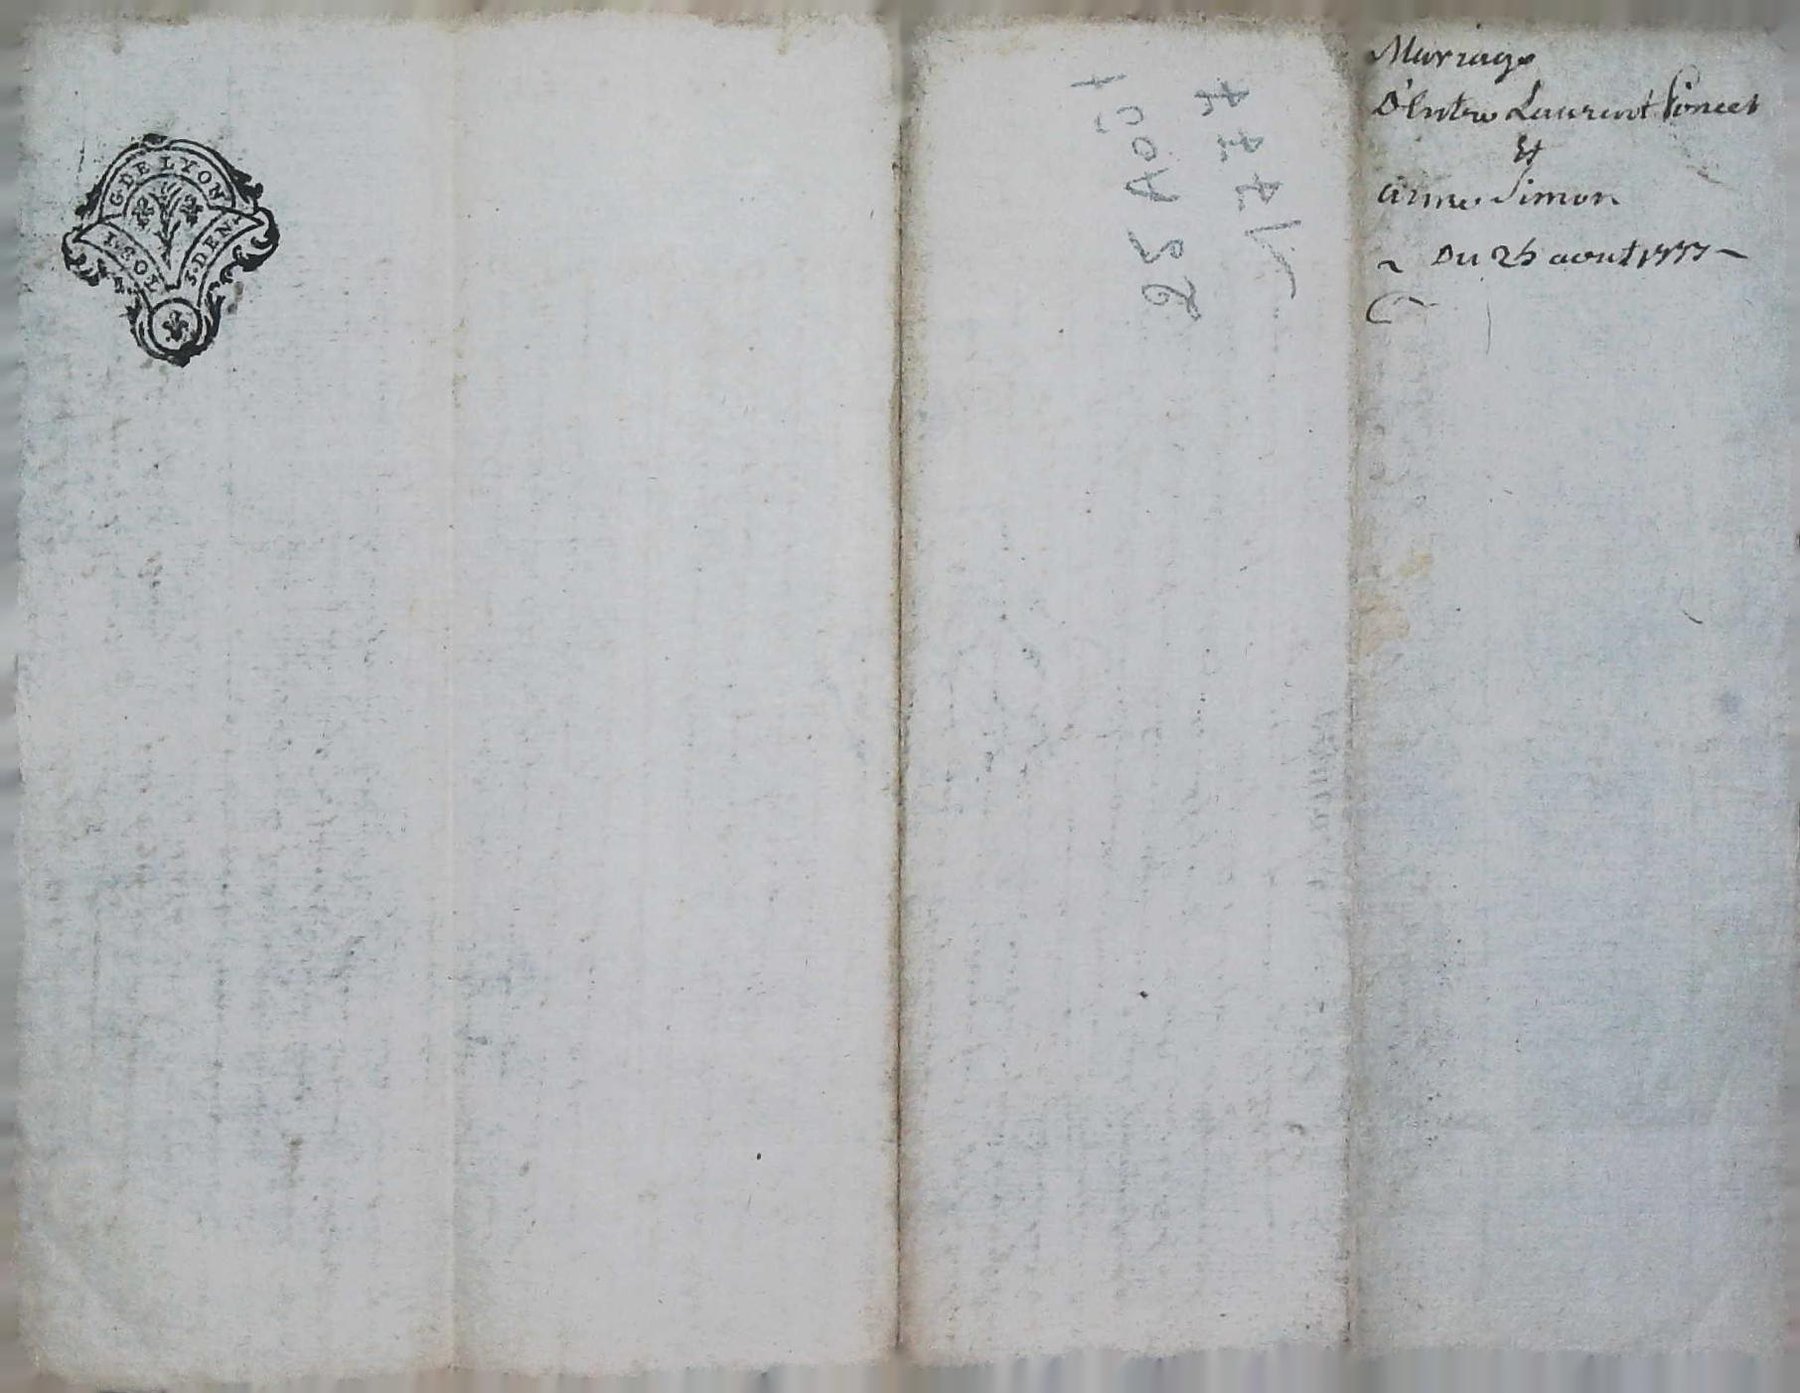 G. DE LYON
1. SOL
3. DEN.
25 Août
1777
Mariage
D'Entre Laurent Poncet
Et
anne Simon
Du 25 aout 1777